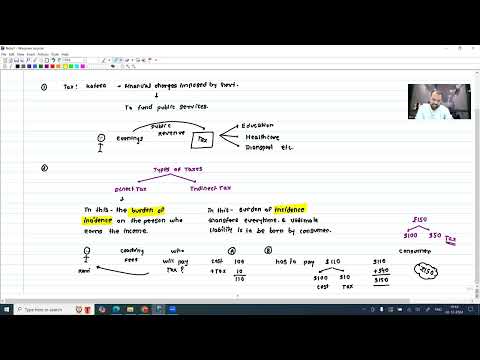 ① Tax: Kakera → Financial charges imposed by Govt.
To fund public services.
Public
Revenue
earnings
Tax
Education
Healthcare
Transport etc.
②
Types of Taxes
Direct Tax
Indirect Tax
In this - the burden of
incidence on the person who
earns the income.
In this - Burden of incidence
transfers everytime & ultimate
liability is to be born by consumer.
$150
$100 $50 Tax
Coaching
Fees
Ram
who
will pay
Tax?
Ⓐ
Cost 100
+ Tax 10
110
Ⓑ
has to pay $110
$100 $10
Cost Tax
Consumer
$110
+ $40
$150
$150